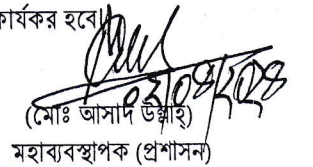 কার্যকর হবে।
(মোঃ আসাদ উল্লাহ্)
মহাব্যবস্থাপক (প্রশাসন)